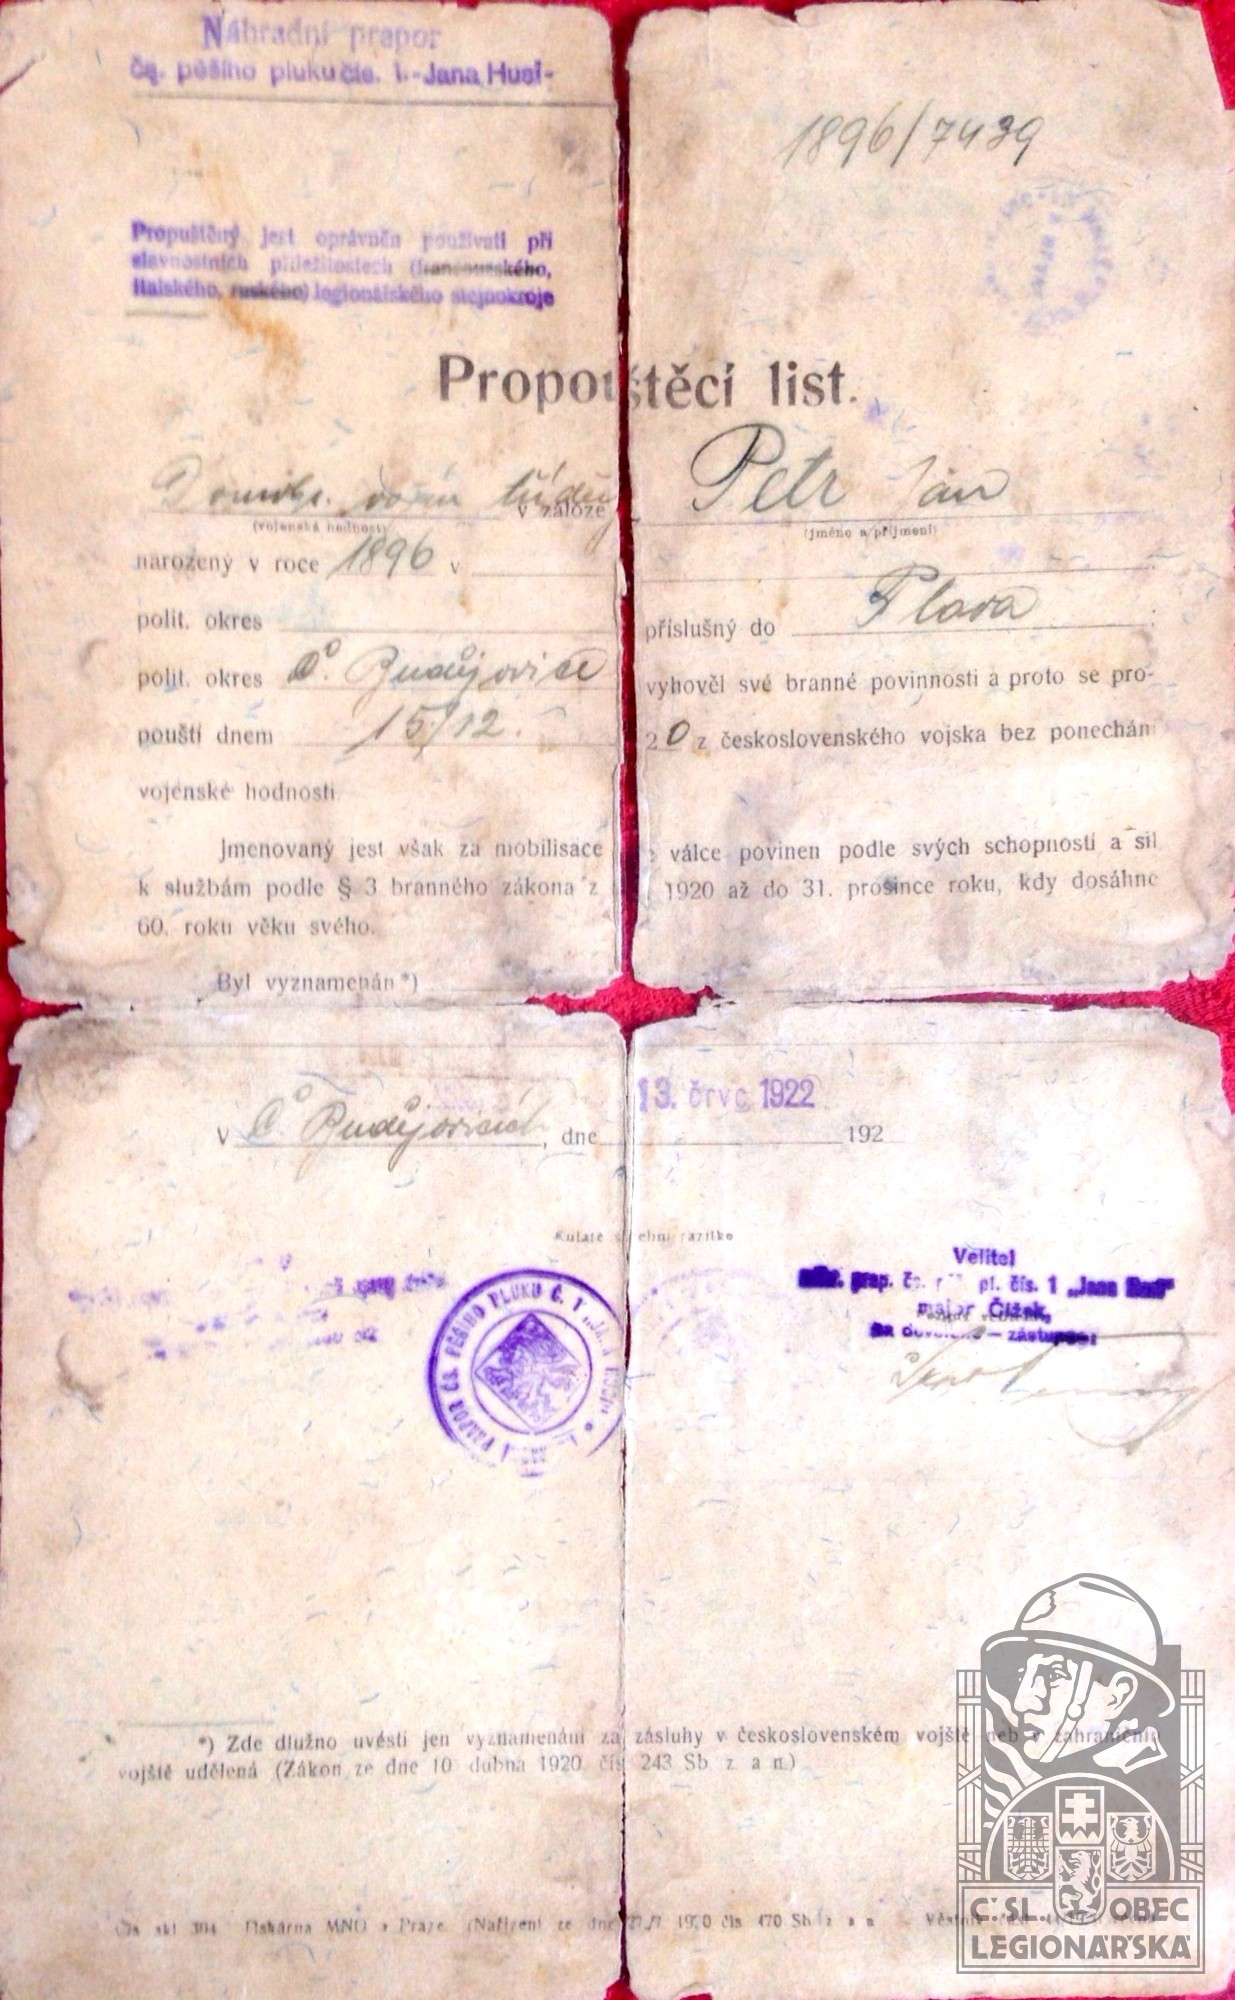 Náhradní prapor
čs. pěšího pluku čís. 1.-Jana Husi-
1896/7439
Propuštěný jest oprávněn používati při
slavnostních příležitostech (francouzského,
italského, ruského) legionářského stejnokroje
Propouštěcí list.
v záloze Petr Jan
(vojenská hodnost) (jméno a příjmení)
narozený v roce 1896 v
polit. okres příslušný do Plava
polit. okres Č. Budějovice vyhověl své branné povinnosti a proto se pro-
pouští dnem 15/12. 20 z československého vojska bez ponechání
vojenské hodnosti
Jmenovaný jest však za mobilisace válce povinen podle svých schopností a sil
k službám podle § 3 branného zákona z 1920 až do 31. prosince roku, kdy dosáhne
60. roku věku svého.
Byl vyznamenán*)
V Č. Budějovicích, dne 13. črvc 1922 192
Kulaté služební razítko
Velitel
náhr. prap. čs. pěš. pl. čís. 1 „Jana Husi"
major Čížek,
na dovolené — zástupce:
PRAPOR ČS. PĚŠÍHO PLUKU Č. 1 „JANA HUSI"
*) Zde dlužno uvésti jen vyznamenání za zásluhy v československém vojště neb v zahraničním
vojště udělená (Zákon ze dne 10 dubna 1920 čís 243 Sb. z. a n.)
Čís skl 304 Tiskárna MNO v Praze (Nařízení ze dne 1920 čís 470 Sb z a n Věstník
Č.SL. OBEC
LEGIONÁŘSKÁ